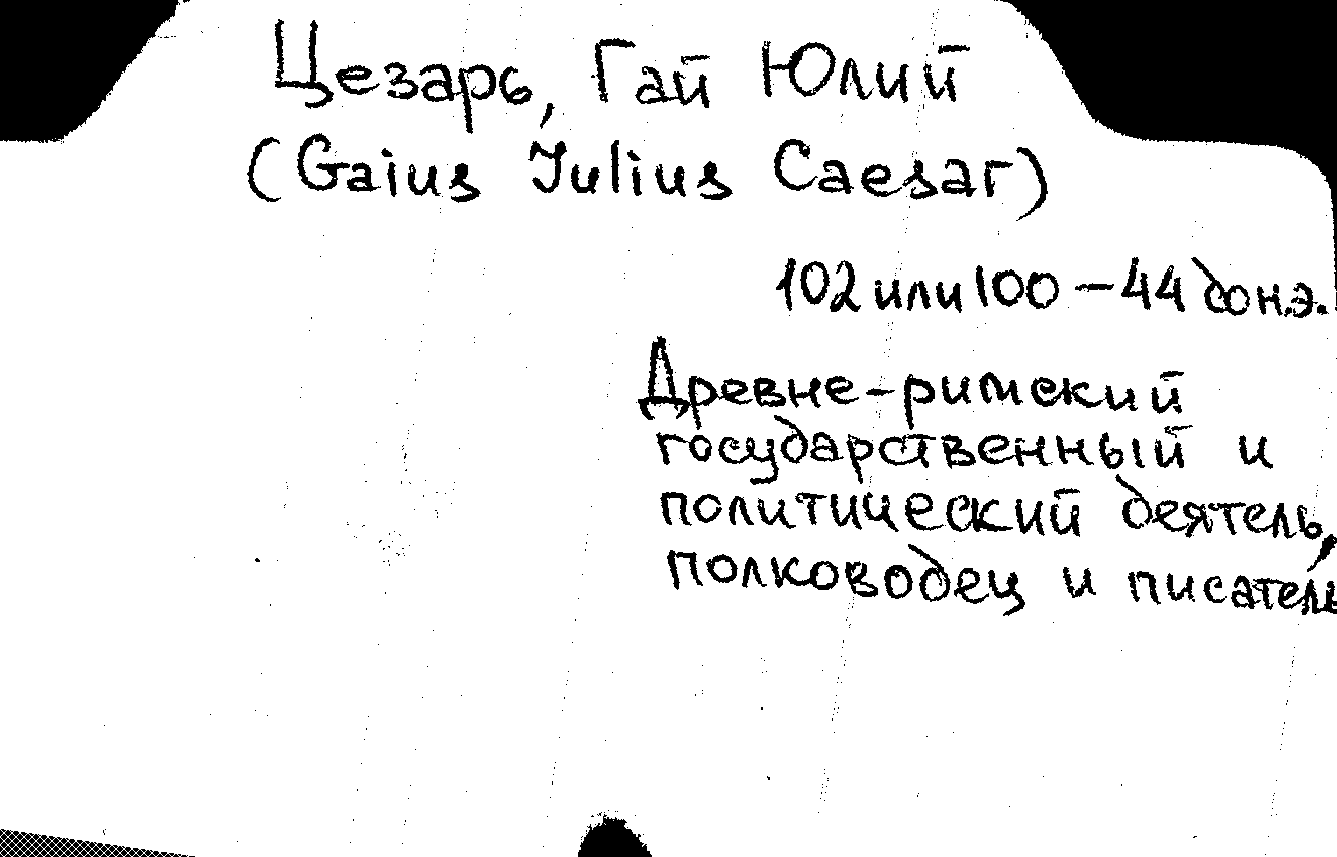 Цезарь, Гай Юлий
(Gaius Julius Caesar)
102 или 100 – 44 до н.э.
Древне-римский
государственный и
политический деятель,
полководец и писатель